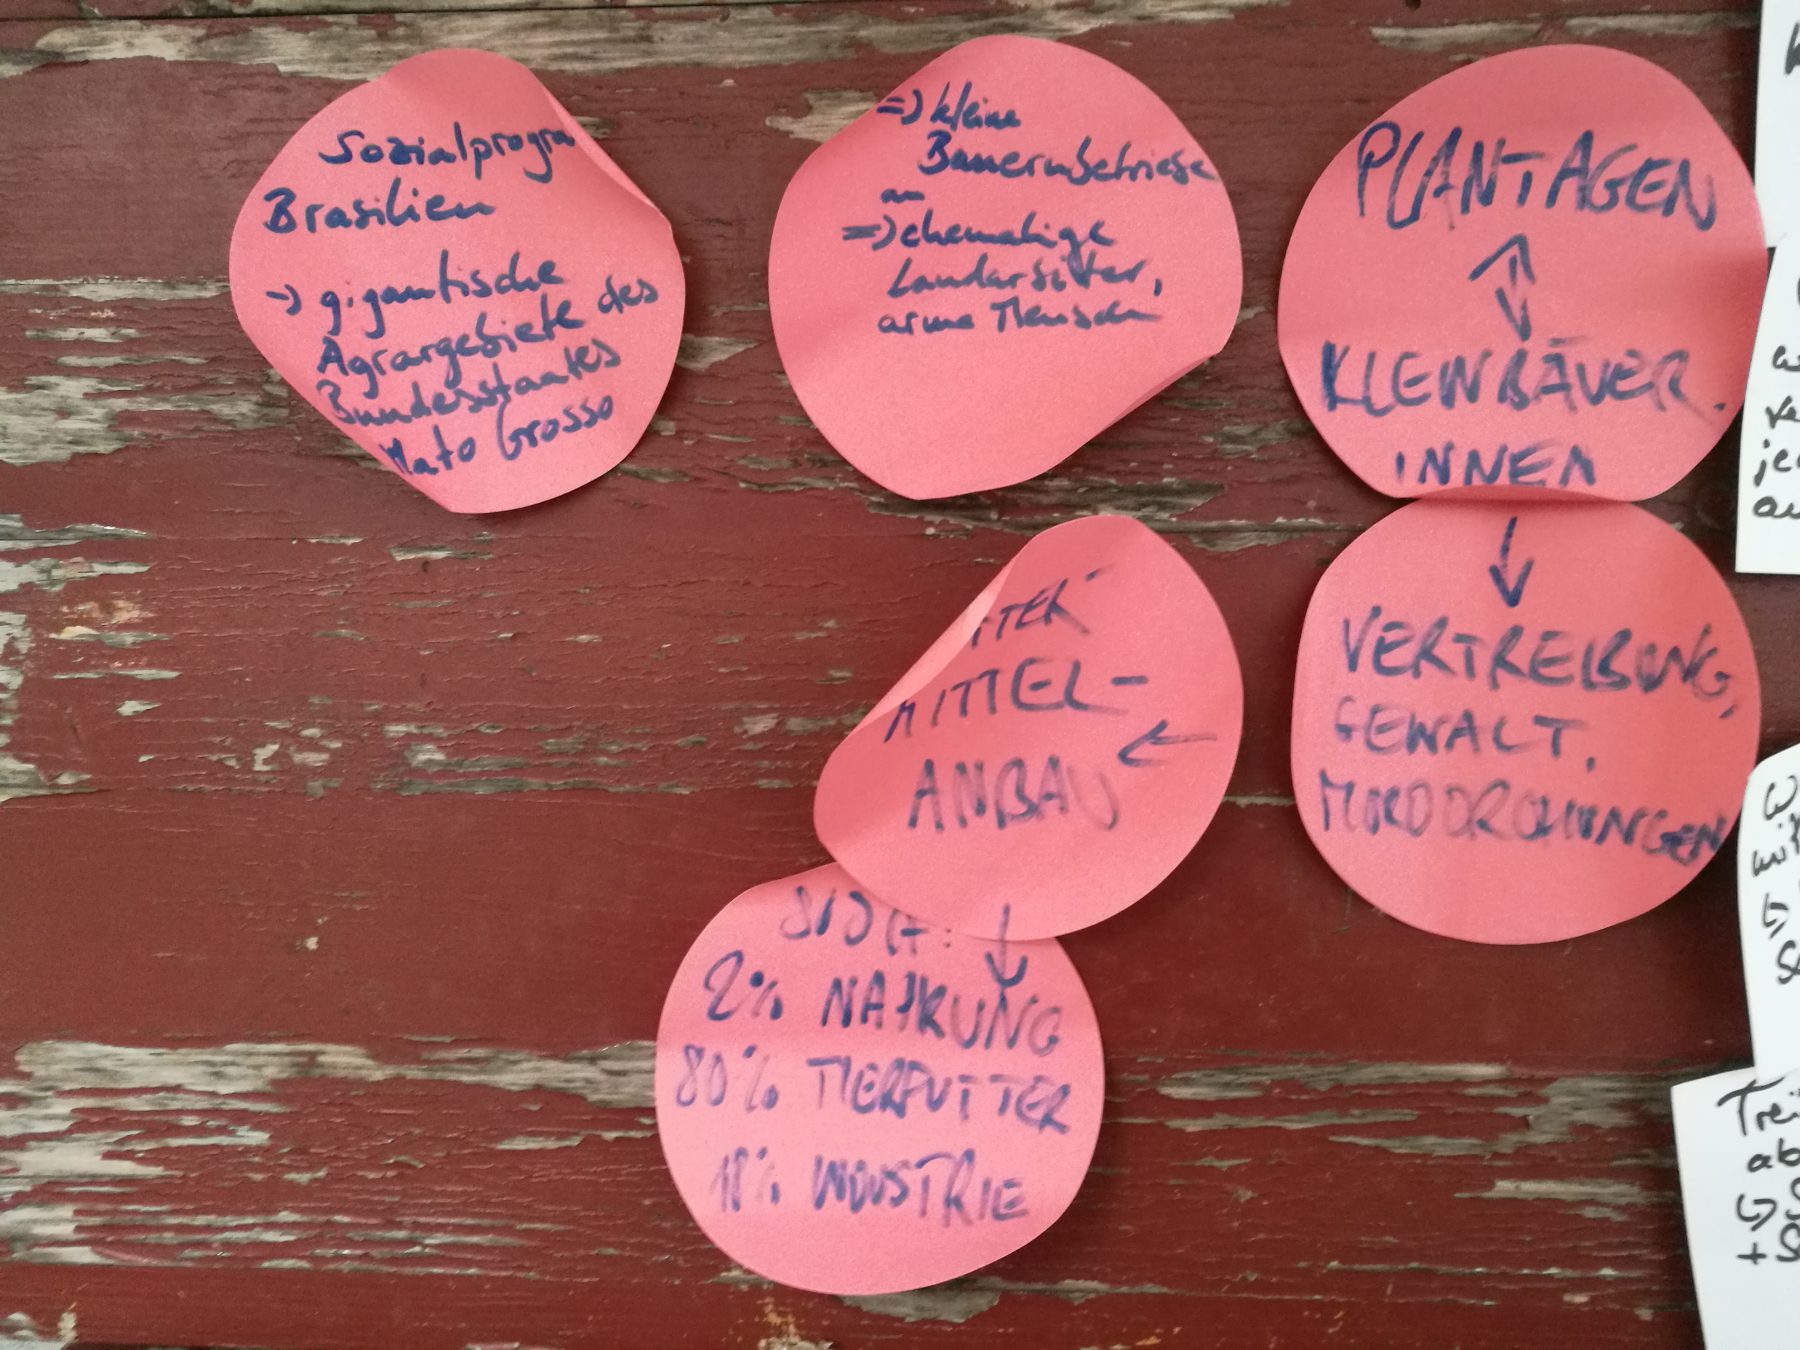 Sozialprogra
Brasilien
-> gigantische
Agrargebiete des
Bundesstaates
Mato Grosso
=> kleine
Bauernbetriebe
=> ehemalige
Landarbeiter,
arme Mensch
PLANTAGEN
KLEINBÄUER.
INNEN
VERTREIBUNG,
GEWALT,
MORDDROHUNGEN
TTER
MITTEL-
ANBAU
SOJA:
2% NAHRUNG
80% TIERFUTTER
18% INDUSTRIE
Trei
ab